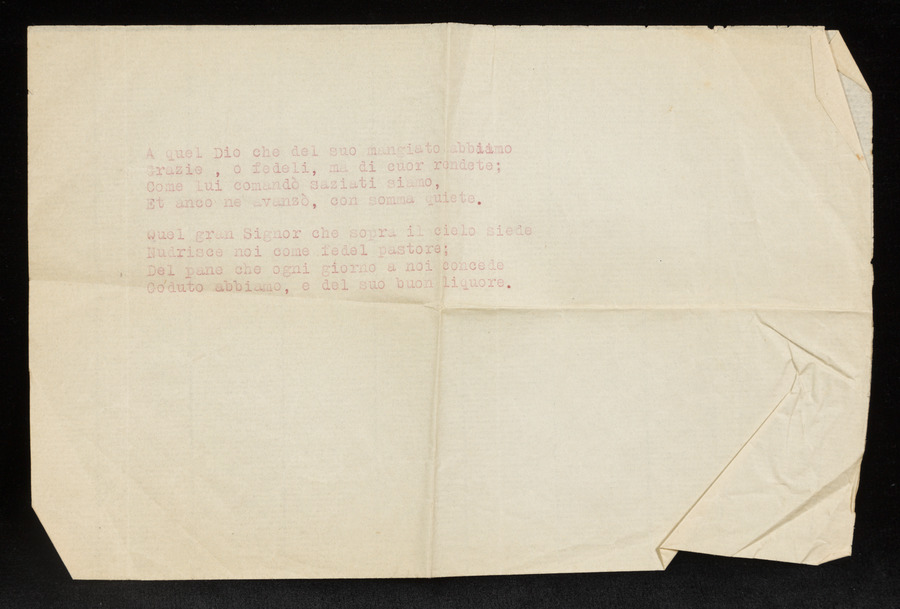 A quel Dio che del suo mangiato abbiamo
Grazie , o fedeli, ma di cuor rendete;
Come lui comandò saziati siamo,
Et anco ne avanzò, con somma quiete.
Quel gran Signor che sopra il cielo siede
Nudrisce noi come fedel pastore;
Del pane che ogni giorno a noi concede
Go'duto abbiamo, e del suo buon liquore.